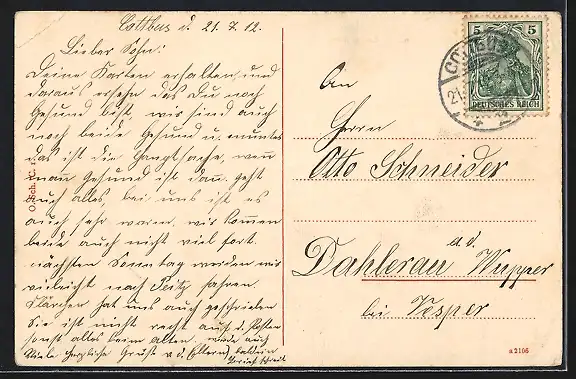 Cottbus d. 21.7.12.
Lieber Sohn!
Deine Karten erhalten, und
daraus ersehn das Du noch
Gesund bist, wir sind auch
noch beide Gesund u. munter
das ist die Hauptsache, wen
man Gesund ist dan geht
auch alles, bei uns ist es
auch sehr warm, wir kommen
beide auch nicht viel fort.
nächsten Sonntag werden wir
vieleicht nach fahren.
Klärchen hat uns auch geschrieben
Sie ist nicht recht auf d. Posten
sonst alles beim alten.
Viele herzliche Grüße v. d. Eltern
5 5
DEUTSCHES REICH
COTTBUS
21.
An
Herrn
Otto Schneider
Dahlerau a.d. Wupper
bei Vesper
O. Sch. C.
a 2106